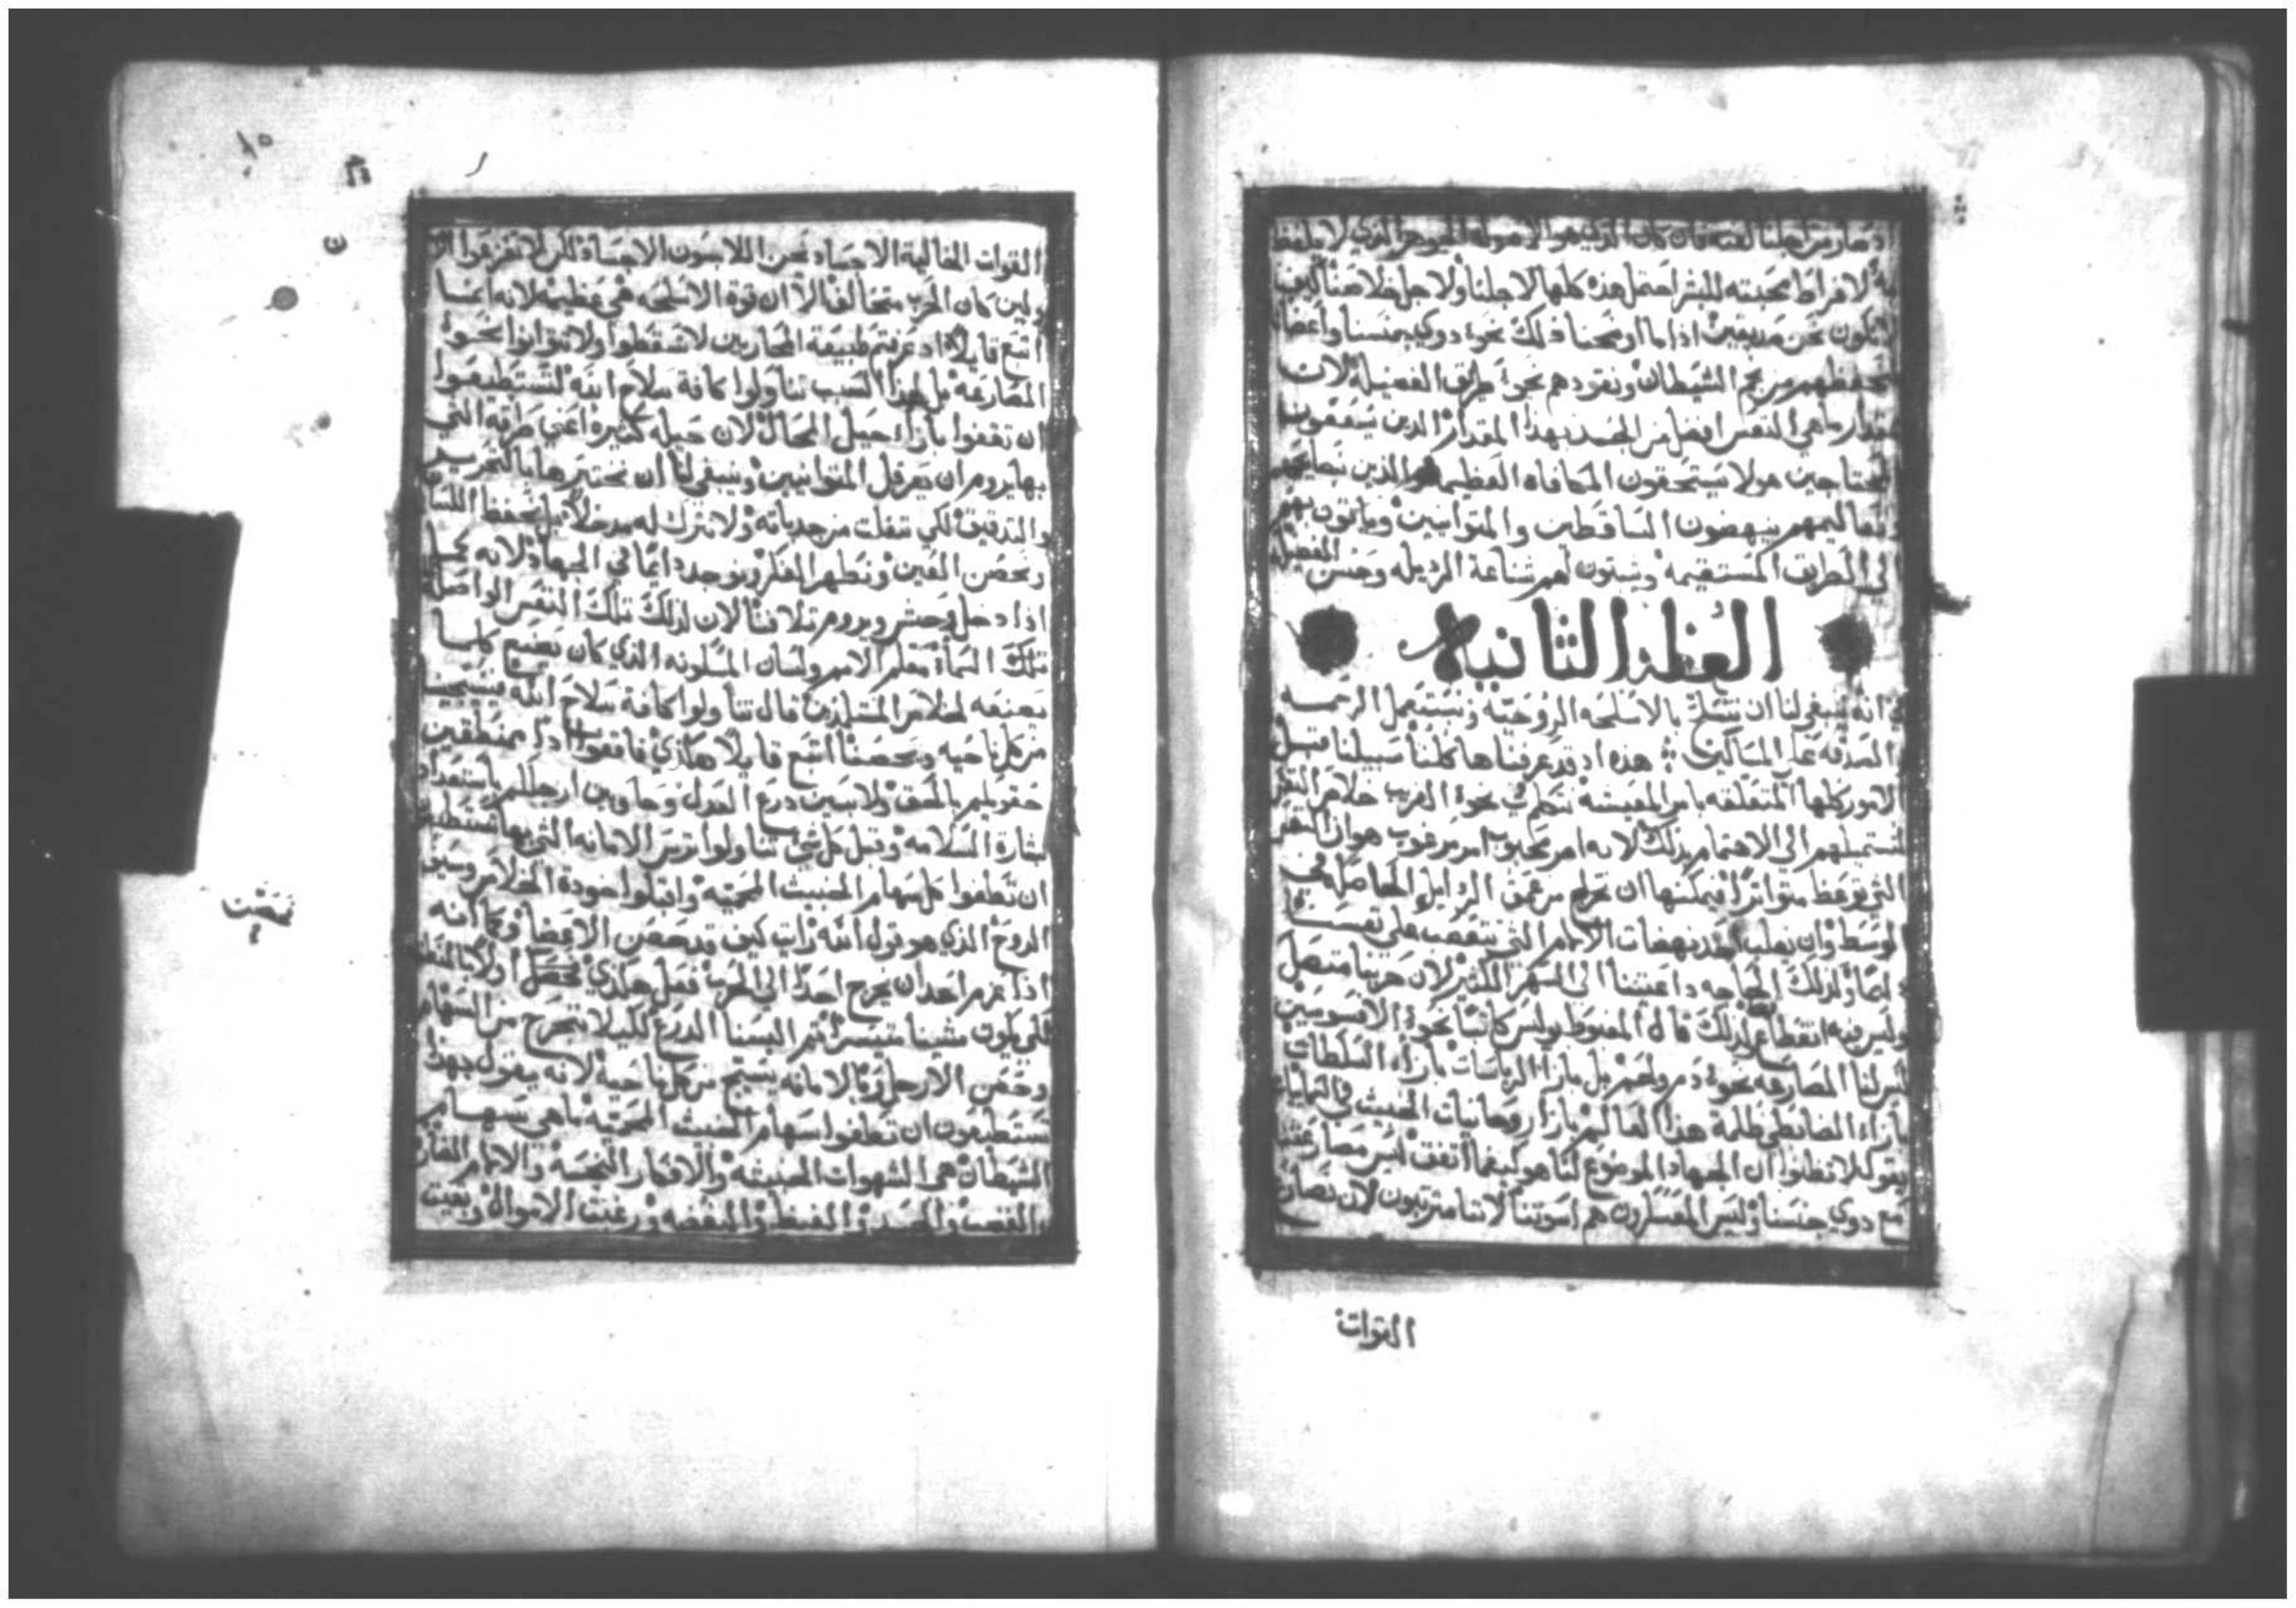 لافراط محبته للبشر احتمل هذه كلها لاجلنا ولاجل خلاصنا فكيف
نكون نحن صديقين اذا ما اوضحنا ذلك نحو دوي جنسنا واعضانا
نحفظهم من فخ الشيطان ونقودهم نحو طريق الفضيله لان
مقدار ماهي النفس افضل من الجسد بهذا المقدار الدين يسعفون
المحتاجين هولا يستحقون المكافاه العظيمه والذين
وتعاليمهم ينهضون الساقطين والمتوانيين وياتون بهم
الى الطريق المستقيمه ويبينون لهم شناعة الرديله وحسن الفضيله
العظه الثانيه
في انه ينبغي لنا ان نتسلح بالاسلحه الروحيه ونستعمل الرحمه
والصدقه على المساكين هذه اد قد عرفناها كلنا سبيلنا قبل
الامور كلها المتعلقه بامر المعيشه نخاطب نحو القريب خلاص النفس
لنستميلهم الى الاهتمام بذلك لانه امر محبوب امر مرغوب هو ان النفس
التي توعظ متواترا فيمكنها ان تخرج من عمق الردايل الحاصله في
الوسط وان يغلب نهضات الالام التي تتعصب على نفسنا
ولذلك الحاجه داعيتنا الى السهر الكثير لان حربنا متصل
وليس فيه انقطاع لذلك قال المغبوط بولس كاتبا نحو الافسوسيين
ليس لنا المصارعه نحو دم ولحم بل بازا الرياسات بازاء السلطات
بازاء الضابطي ظلمة هذا العالم بازا روحانيات الخبيث في السمايات
يقول لا تظنوا ان الجهاد الموضوع لنا هو كيفما اتفق ليس مصارعتنا
مع دوي جنسنا وليس المعسكرون هم اسوتنا لاننا مرتبون لان نصارع
القوات
١٥
القوات الخالية الاجساد نحن اللابسون الاجساد لكن لا تفزعوا
ولين كان الحرب متخالفا الا ان قوة الاسلحه هي عظيمه لانه ايضا
اتبع قايلا اد عرفتم طبيعة المحاربين لا تسقطوا ولا تتوانوا نحو
المصارعه بل لهذا السبب تناولوا كافة سلاح الله لتستطيعوا
ان تقفوا بازاء حيل المحال لان حيله كثيره اعني طرقه التي
بها يروم ان يعرقل المتوانيين وينبغي لنا ان نختبرها بالتحرير
والتدقيق لكي نفلت من جدباته ولا نترك له مدخلا بل نحفظ اللسان
ونحصن العين ونطهر الفكر ونوجد دايما في الجهاد لانه كمل
اذا دخل وحش ويروم تلافنا لان لذلك تلك النفس الواصله
تلك السماء معلم الامم ولسان المسكونه الذي كان يصنع كلما
يصنعه لخلاص المتتلمذين قال تناولوا كافة سلاح الله
من كل ناحيه ويحصننا اتبع قايلا هكذي فاقفوا اذا ممنطقين
حقويكم بالحق ولابسين درع العدل وحاوين ارجلكم باستعداد
بشارة السلامه وقبل كل شي تناولوا ترس الامانه التي بها تستطيعوا
ان تطفوا كل سهام الخبيث المحميه واقبلوا خودة الخلاص وسيف
الروح الذي هو قول الله رايت كيف قد حصن الاعضا وكما انه
اذا عزم احد ان يخرج احدا الى الحرب فعل هكذي
لكي يكون مشينا متيسرا ثم البسنا الدرع لكيلا تنجرح من السهام
وحصن الارجل وبالامانه يسيج من كل ناحيه لانه يقول بهذا
تستطيعون ان تطفوا سهام الخبيث المحميه ماهي سهام
الشيطان هي الشهوات الخبيثه والافكار النجسه والالام
الغضب والحسد والغيظ والبغضه ورغبت الاموال وبقيت